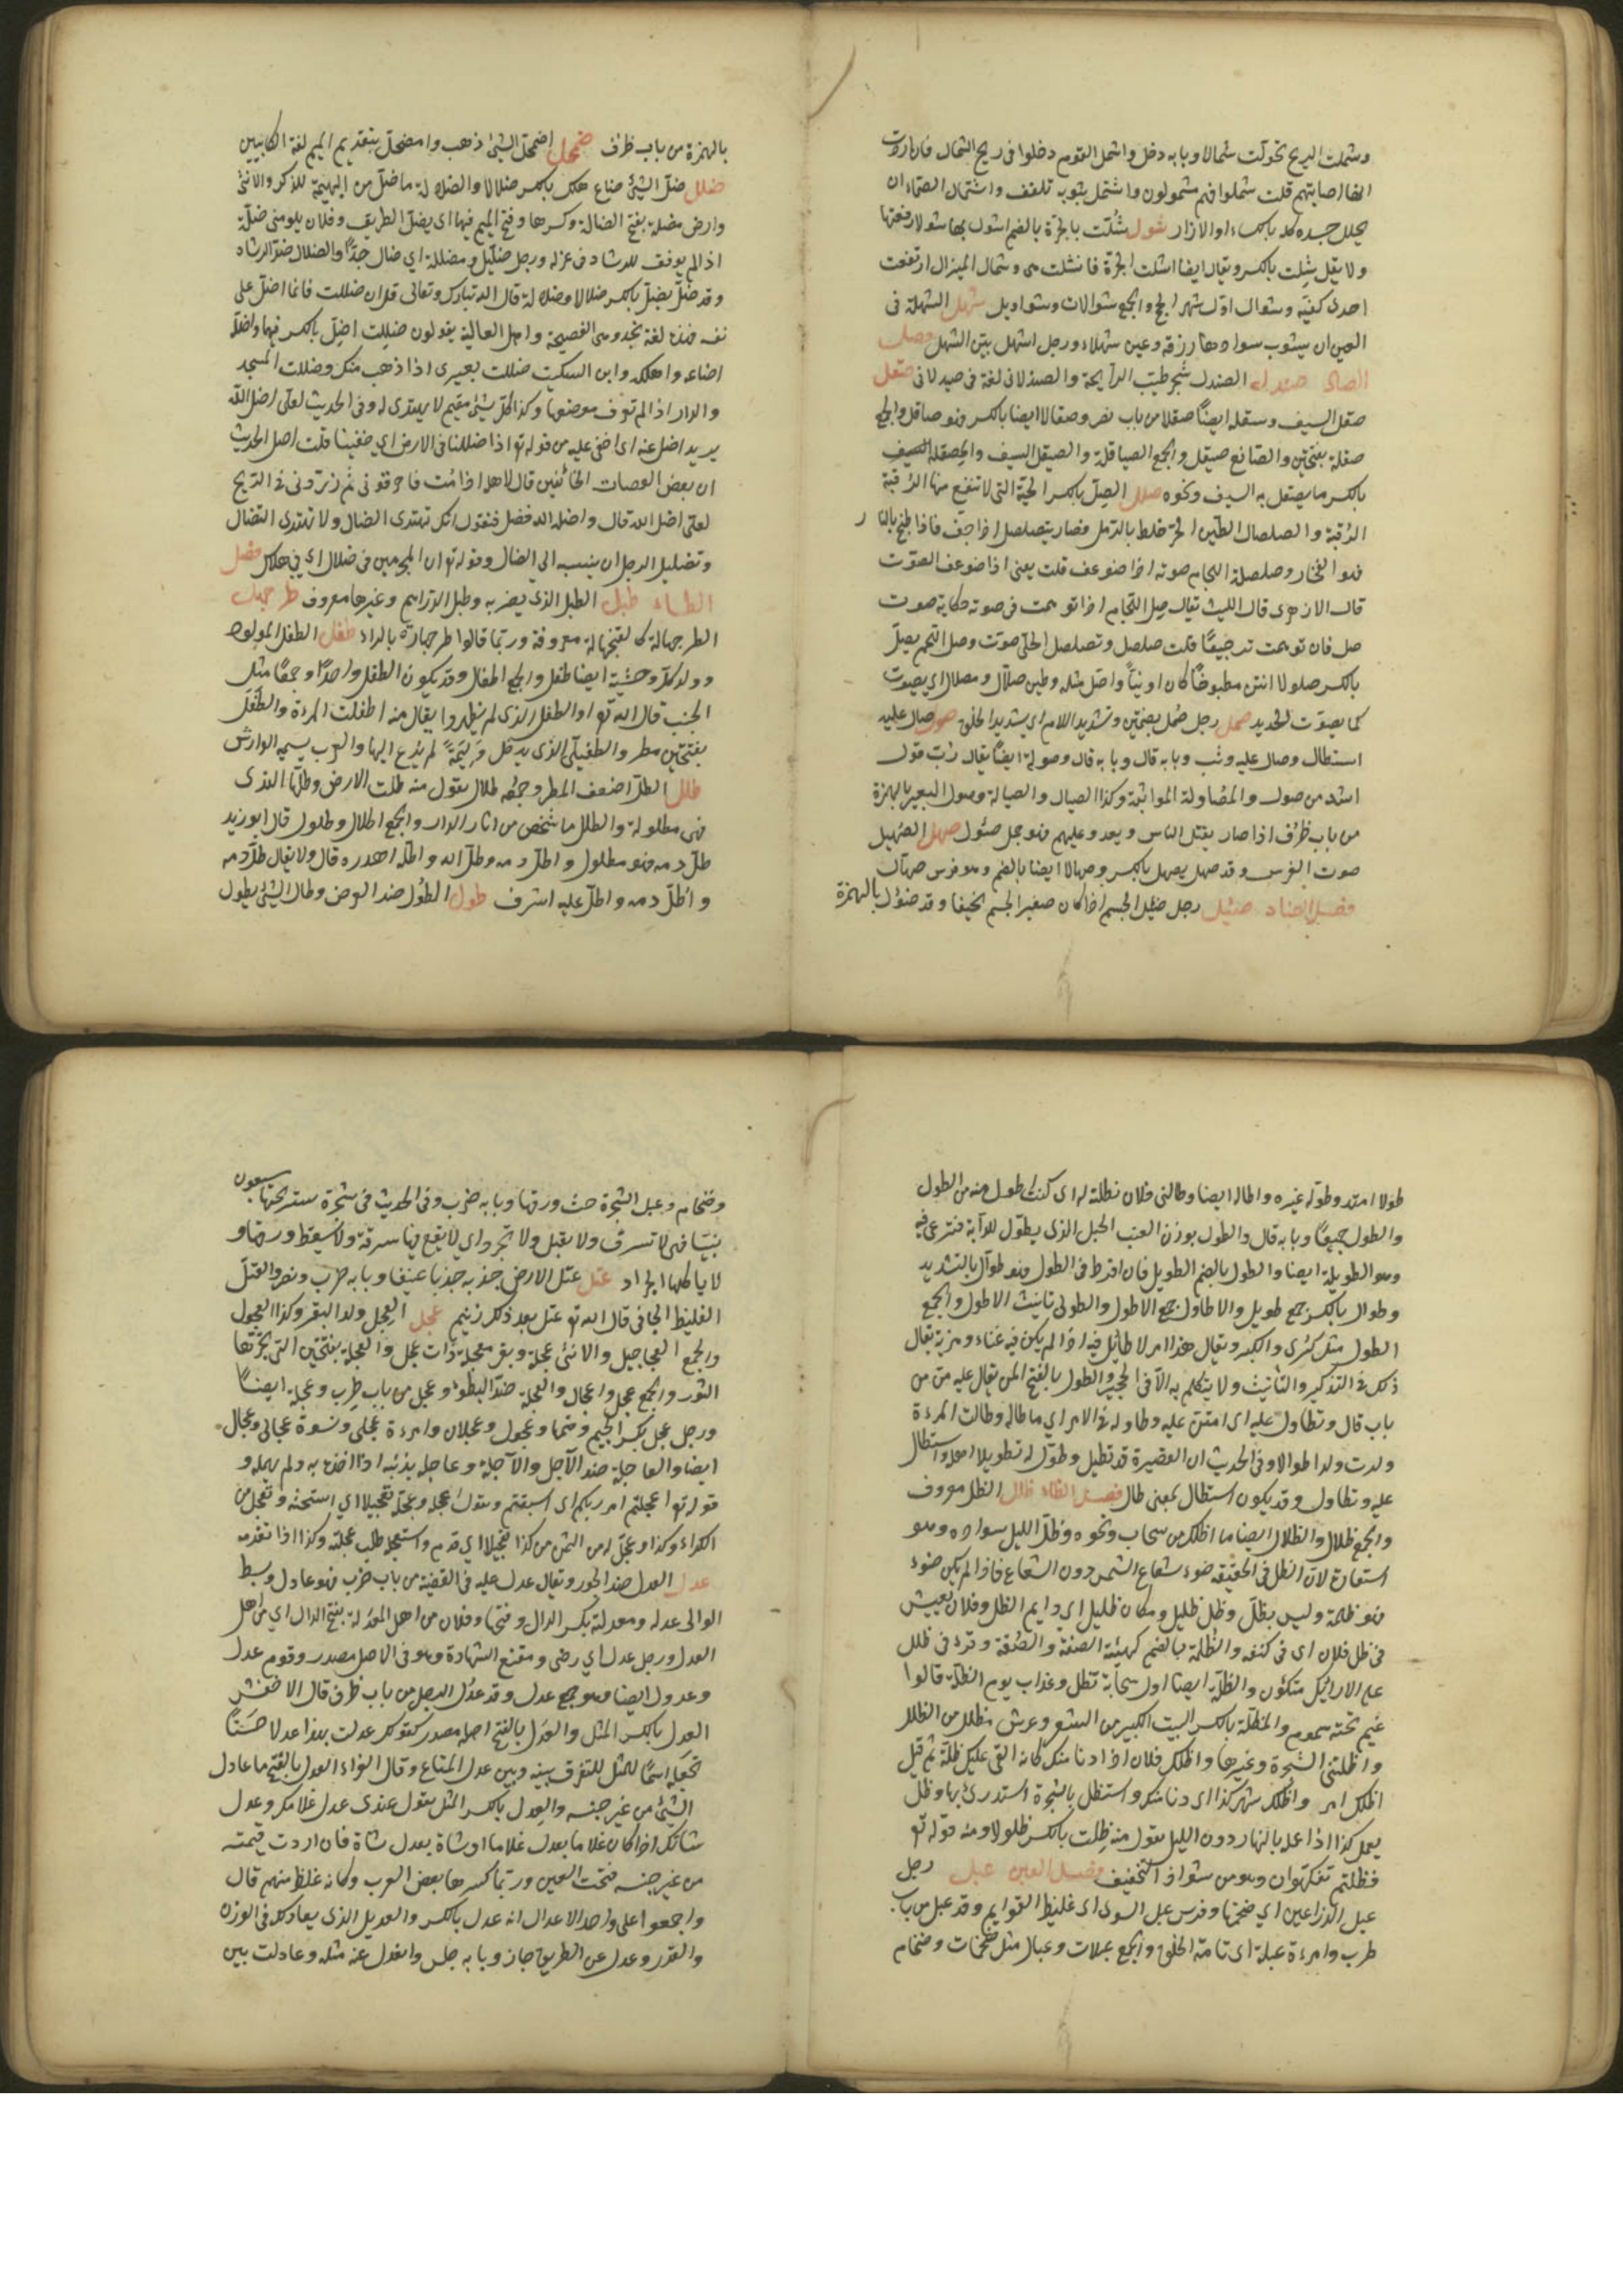 وشملت الريح تحولت شمالا وبابه دخل واشمل القوم دخلوا فى ريح الشمال فان اردت
انها اصابتهم قلت شملوا فهم مشمولون واشتمل بثوبه تلفف واشتمال الصماء ان
يجلل جسده كله بالكساء او الازار شول شُلت بالجرة بالضم اشول بها شولا رفعتها
ولا يقل شِلت بالكسر ويقال ايضا اشلت الجرة فانشالت هى وشال الميزان ارتفعت
احدى كفتيه وشوال اول شهر الحج والجمع شوالات وشواويل شهل الشهلة فى
العين ان يشوب سوادها زرقة وعين شهلاء ورجل اشهل بيّن الشهل فصل
الصاد صندل الصندل شجر طيّب الرايحة والصندلانى لغة فى صيدلانى صقل
صقل السيف وسقله ايضاً صقلا من باب نصر وصقالا ايضا بالكسر فهو صاقل والجمع
صقلة بفتحتين والصانع صيقل والجمع الصياقلة والصيقل السيف والمصقلة
بالكسر ما يصقل به السيف ونحوه صلل الصِلّ بالكسر الحية التى لا تنفع منها الرُقية
والصلصال الطين الحر خلط بالرمل فصار يتصلصل اذا جف فاذا طبخ بالنار
فهو الفخار وصلصلة اللجام صوته اذا ضوعف قلت يعنى اذا ضوعف الصوت
قال الازهرى قال الليث يقال صل اللجام اذا توهمت فى صوته حكاية صوت
صل فان توهمت ترجيعًا قلت صلصل وتصلصل الحلى صوت وصل اللحم يصلّ
بالكسر صلولا انتن مطبوخًا كان او نيّاً واصل مثله وطين صلّال ومصلال اى يصوت
كما يصوت الحديد صمل رجل صُمل بضمتين وتشديد اللام اى شديد الخلق صول صال عليه
استطال وصال عليه وثب وبابه قال وصولة ايضًا يقال رُبّ قول
اشد من صول والمصاولة المواثبة وكذا الصيال والصيالة وصؤل البعير بالهمزة
من باب ظرُف اذا صار يقتل الناس ويعدو عليهم فهو جمل صئول صهل الصهيل
صوت الفرس وقد صهل يصهل بالكسر وصهالا ايضا بالضم وهو فرس صهال
فصل الضاد ضئل رجل ضئيل الجسم اذا كان صغير الجسم نحيفا وقد ضؤل بالهمزة
بالهمزة من باب ظرف ضمحل اضمحل الشئ ذهب وامضحل بتقديم الميم لغة الكلابيين
ضلل ضل الشئ ضاع هلك بالكسر ضلالا والضالة ما ضل من البهيمة للذكر والانثى
وارض مضلة بفتح الضاد وكسرها وفتح الميم فيها اى يضل الطريق وفلان يلومنى ضلّة
اذا لم يوفق للرشاد فى عذله ورجل ضلّيل ومضلل اى ضال جدًّا والضلال ضد الرشاد
وقد ضل يضل بالكسر ضلالا وضلالة قال الله تبارك وتعالى قل ان ضللت فانما اضل على
نفسى فهذه لغة نجد وهى الفصيحة واهل العالية يقولون ضلِلت اضل بالكسر فيهما واضلّه
اضاعه واهلكه وابن السكيت ضللت بعيرى اذا ذهب منك وضللت المسجد
والدار اذا لم تعرف موضعها وكذا كل شئ مقيم لا يهتدى له وفى الحديث لعلى اضل الله
يريد اضل عنه اى اخفى عليه من قوله تع اذا ضللنا فى الارض اى خفينا قلت اصل الحديث
ان بعض العصات الخائفين قال لاهله اذا مت فاحرقونى ثم ذرّونى فى الريح
لعلى اضل الله قال واضله الله فضل فتقول انك تهتدى الضال ولا تهتدى المتضال
وتضليل الرجل ان ينسبه الى الضال وقوله تع ان المجرمين فى ضلال اى فى هلاك فصل
الطاء طبل الطبل الذى يضرب به وطبل الدراهم وغيرها معروف طرجهل
الطرجهالة كالفنجانة معروفة وربما قالوا طرجهارة بالراء طفل الطفل المولود
وولد كل وحشية ايضا طفل والجمع اطفال وقد يكون الطفل واحدًا وجمعًا مثل
الجنب قال الله تع او الطفل الذين لم يظهروا يقال منه اطفلت المراة والطَفَل
بفتحتين مطر والطفيلى الذى يدخل وليمةً لم يدع اليها والعرب يسميه الوارش
طلل الطلّ اضعف المطر وجمعه طلال يقول منه طلت الارض وطلّها الندى
فهى مطلولة والطلل ما شخص من اثار الدار والجمع اطلال وطلول قال ابوزيد
طلّ دمه فهو مطلول واطلّ دمه وطلّه الله واطلّه اهدره قال ولا يقال طلّ دمه
واُطلّ دمه واطلّ عليه اشرف طول الطُول ضد العرض وطال الشئ يطول
طولا امتد وطوله غيره واطاله ايضا وطالنى فلان فطلته اى كنت اطول منه من الطول
والطول جميعًا وبابه قال والطول بوزن العنب الحبل الذى يطول للدابة فترعى فيه
وهو الطويلة ايضا والطول بالضم الطويل فان افرط فى الطول فهو طوّال بالتشديد
وطوال بالكسر جمع طويل والاطاول جمع الاطول والطولى تانيث الاطول والجمع
الطول مثل كُبرى والكبر ويقال هذا امر لا طائل فيه اذا لم يكن فيه غناء ومزية يقال
ذلك فى التذكير والتأنيث ولا يتكلم به الا فى الجحد والطول بالفتح المن يقال عليه من من
باب قال وتطاول عليه اى امتن عليه وطاوله فى الامر اى ماطله وطالت المرءة
ولدت ولدا طوالا وفى الحديث ان القصيرة قد تطيل وطوّل له تطويلا امهله واستطال
عليه وتطاول وقد يكون استطال بمعنى طال فصل الظاء ظلل الظل معروف
والجمع ظلال والظلال ايضا ما اظلك من سحاب ونحوه وظلّ الليل سواده وهو
استعارة لان الظل فى الحقيقة ضوء شعاع الشمس دون الشعاع فاذا لم يكن ضوء
فهو ظلمة وليس بظلّ وظل ظليل ومكان ظليل اى دايم الظل وفلان يعيش
فى ظل فلان اى فى كنفه والظلة بالضم كهيئة الصفة والصُفة وقرئ فى ظلل
على الارائك متكئون والظلّة ايضا اول سحابة تظل وعذاب يوم الظلّة قالوا
غيم تحته سموم والمظلّة بالكسر البيت الكبير من الشعر وعرش مظلل من الظلل
واظلتنى الشجرة وغيرها واظلك فلان اذا دنا منك كانه القى عليك ظلّه ثم قيل
اظلك امر واظلك شهر كذا اى دنا منك واستظل بالشجرة استدرئ بها وظل
يعمل كذا اذا عمله بالنهار دون الليل يقول منه ظللت بالكسر ظلولا ومنه قوله تع
فظلتم تفكهون وهو من شواذ التخفيف فصل العين عبل رجل
عبل الذراعين اى ضخمها وفرس عبل الشوى اى غليظ القوايم وقد عبل من باب
ظرب وامرءة عبلة اى تامة الخلق والجمع عبلات وعبال مثل ضخمات وضخام
وضخام وعبل الشجرة حث ورقها وبابه ضرب وفى الحديث فى شجرة سر تحتها سبعون
نبيّا فهى لا تسرف ولا يعبل ولا تجرد اى لا يقع فيها سرفة ولا يسقط ورقها و
لا ياكلها الجراد عتل عتل الارض جذبه جذبا عنيفا وبابه ضرب ونصر والعتلّ
الغليظ الجافى قال الله تع عتل بعد ذلك زنيم عجل العِجل ولد البقر وكذا العجول
والجمع العجاجيل والانثى عجلة وبقر معجلة ذات عجل والعجلة بفتحتين التى يجرها
الثور والجمع عجل واعجال والعجلة ضد البطؤ وعجل من باب طرب وعجلة ايضاً
ورجل عجل بكسر الجيم وضمها وعجول وعجلان وامرءة عجلى ونسوة عجالى وعجال
ايضا والعاجلة ضد الآجل والآجلة وعاجله بذنبه اذا اخذه به ولم يمهله و
قوله تع اعجلتم امر ربكم اى اسبقتم ويقول اعجله وعجله تعجيلا اى استحثه وتعجل من
الكراء كذا وعجّل له من الثمن كذا تعجيلا اى قدم واستعجله طلب عجلته وكذا اذا تقدمه
عدل العدل ضد الجور ويقال عدل عليه فى القضية من باب ضرب فهو عادل وبسط
الوالى عدله ومعدلته بكسر الدال وفتحها وفلان من اهل المعدلة بفتح الدال اى من اهل
العدل ورجل عدل اى رضى ومقنع الشهادة وهو فى الاصل مصدر وقوم عدل
وعدول ايضا وهو جمع عدل وقد عدُل الرجل من باب ظرف قال الاخفش
العدل بالكسر المثل والعَدل بالفتح اصله مصدر كقولك عدلت بهذا عدلا حسَناً
تجعله اسمًا للمثل للتفرق بينه وبين عدل المتاع وقال الفراء العدل بالفتح ما عادل
الشئ من غير جنسه والعِدل بالكسر المثل يقول عندى عدل غلامك وعدل
شاتك اذا كان غلاما يعدل غلاما او شاة يعدل شاة فان اردت قيمته
من غير جنسه فتحت العين وربما كسرها بعض العرب وكانه غلط منهم قال
واجمعوا على واحد الاعدال انه عدل بالكسر والعديل الذى يعادلك فى الوزن
والقدر وعدل عن الطريق جاز وبابه جلس وانعدل عنه مثله وعادلت بين